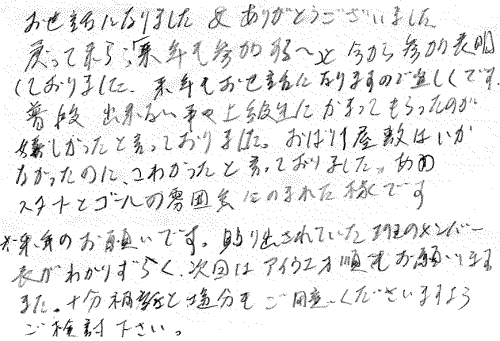 お世話になりました & ありがとうございました
戻って来ら「来年も参加する〜」と今から参加表明
しておりました。来年もお世話になりますので宜しくです。
普段出来ない事や上級生にかまってもらったのが
嬉しかったと言っておりました。おばけ屋敷はいか
なかったのに、こわかったと言っておりました。あの
スタートとゴールの雰囲気にのまれた様です
※来年のお願いです。貼り出されていた班のメンバー
表がわかりずらく、次回はアイウエオ順をお願います
また、十分 と塩分もご用意くださいますよう
ご検討下さい。